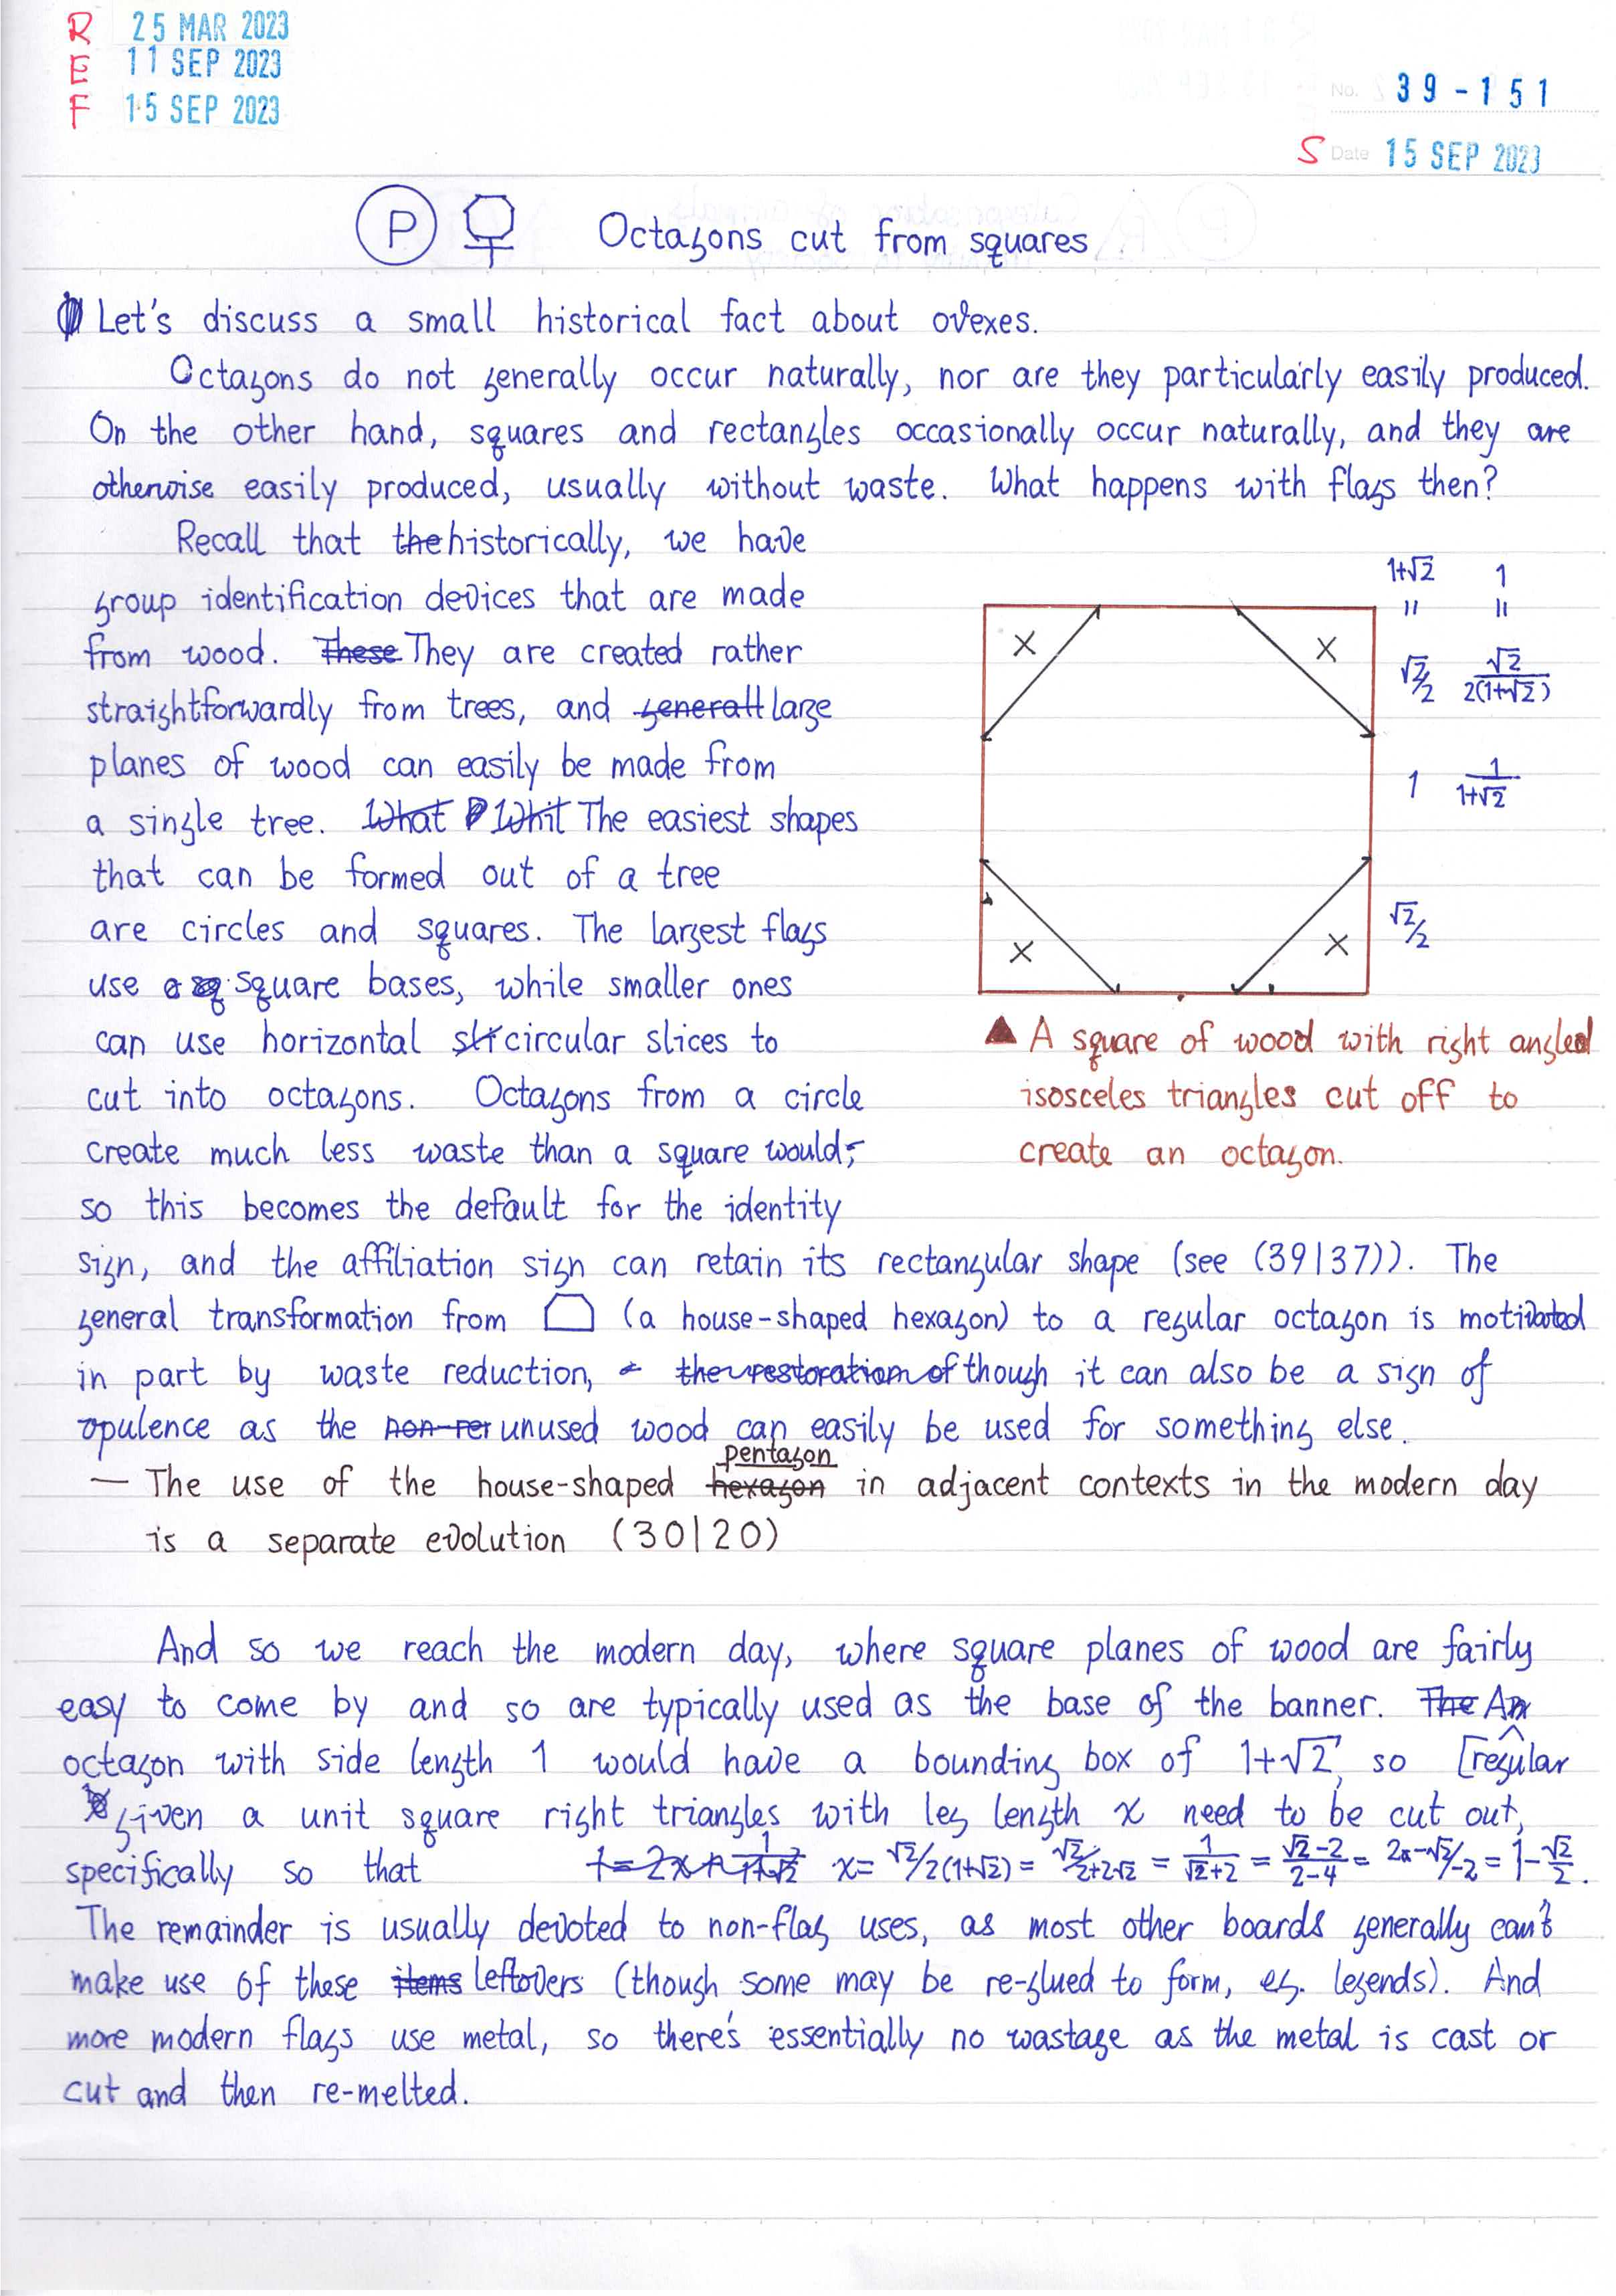 R 25 MAR 2023
E 11 SEP 2023
F 15 SEP 2023
No. 39-151
S Date 15 SEP 2023
P Octagons cut from squares
Let's discuss a small historical fact about ovexes.
Octagons do not generally occur naturally, nor are they particularly easily produced.
On the other hand, squares and rectangles occasionally occur naturally, and they are
otherwise easily produced, usually without waste. What happens with flags then?
Recall that the historically, we have
group identification devices that are made
from wood. These They are created rather
straightforwardly from trees, and generall large
planes of wood can easily be made from
a single tree. What Whit The easiest shapes
that can be formed out of a tree
are circles and squares. The largest flags
use a sq square bases, while smaller ones
can use horizontal sli circular slices to
cut into octagons. Octagons from a circle
create much less waste than a square would,
so this becomes the default for the identity
sign, and the affiliation sign can retain its rectangular shape (see (39|37)). The
general transformation from (a house-shaped hexagon) to a regular octagon is motivated
in part by waste reduction, the restoration of though it can also be a sign of
opulence as the non-rer unused wood can easily be used for something else.
— The use of the house-shaped hexagon pentagon in adjacent contexts in the modern day
is a separate evolution (30|20)
x x
x x
1+√2 1
= =
√2/2 √2/2(1+√2)
1 1/1+√2
√2/2
▲ A square of wood with right angled
isosceles triangles cut off to
create an octagon.
And so we reach the modern day, where square planes of wood are fairly
easy to come by and so are typically used as the base of the banner. The An
octagon with side length 1 would have a bounding box of 1+√2, so [regular
given a unit square right triangles with leg length x need to be cut out,
specifically so that 1=2x+1/1+√2 x= √2/2(1+√2) = √2/2+2√2 = 1/√2+2 = √2-2/2-4 = 2-√2/2 = 1-√2/2.
The remainder is usually devoted to non-flag uses, as most other boards generally can't
make use of these items leftovers (though some may be re-glued to form, eg. legends). And
more modern flags use metal, so there's essentially no wastage as the metal is cast or
cut and then re-melted.